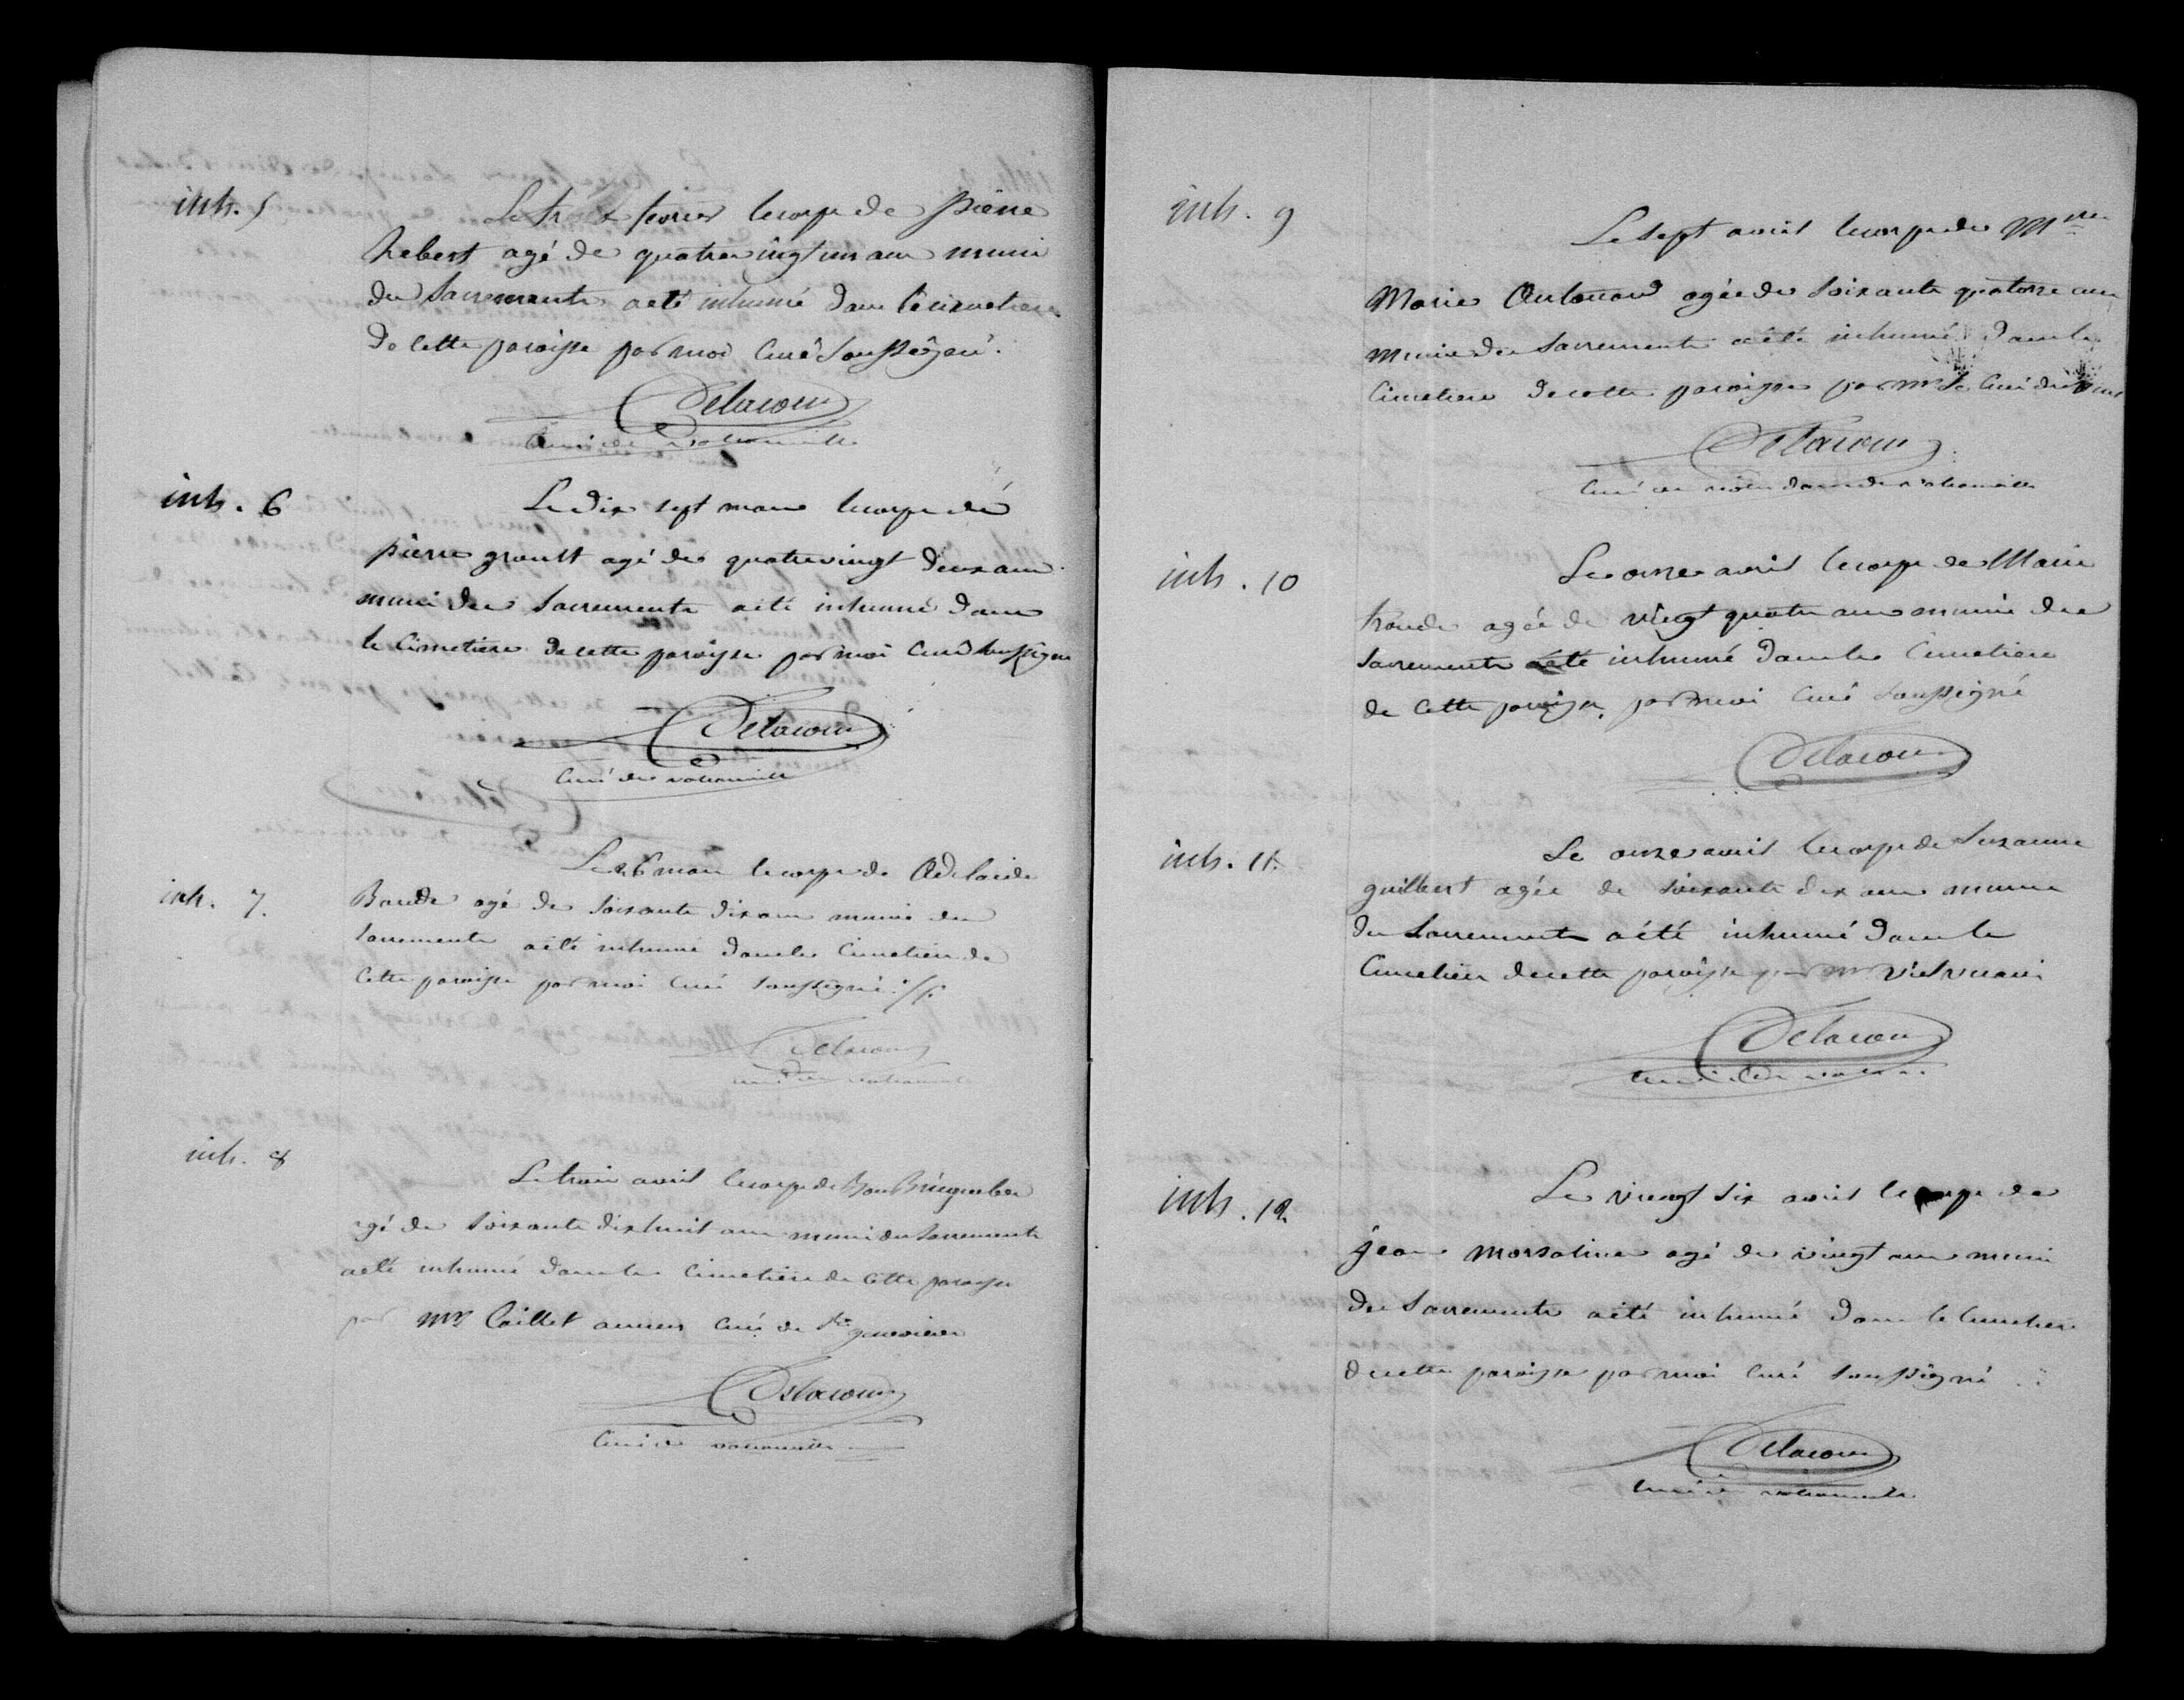 inh. 5
Le trois fevrier le corps de pierre
hebert agé de quatrevingt un ans muni
des Sacrements a été inhumé dans le cimetiere
de cette paroisse par moi Curé Soussigné.
Delacour
Curé de
inh. 6
Le dix sept mars le corps de
pierre grault agé de quatrevingt deux ans
muni des Sacrements a été inhumé dans
le Cimetiere de cette paroisse par moi Curé Soussigné
Delacour
Curé de
inh. 7.
Le 26 mars le corps de Adelaide
Baude agé de soixante dix ans munie des
Sacrements a été inhumé dans le Cimetiere de
Cette paroisse par moi Curé Soussigné
Delacour
inh. 8
Le trois avril le corps de
agé de soixante dix huit ans muni des Sacrements
a été inhumé dans le Cimetiere de Cette paroisse
par Mr Caillet ancien Curé de Ste genevieve
Delacour
Curé de
inh. 9
Le sept avril le corps de
Marie agée de soixante quatorze ans
munie des Sacrements a été inhumé dans le
Cimetiere de cette paroisse par mr le Curé de
Delacour
Curé de
inh. 10
Le onze avril le corps de Marie
agée de vingt quatre ans munie des
Sacrements a été inhumé dans le Cimetiere
de Cette paroisse par moi Curé Soussigné
Delacour
inh. 11.
Le onze avril le corps de Suzanne
guilbert agée de soixante dix ans munie
des Sacrements a été inhumé dans le
Cimetiere de cette paroisse par mr
Delacour
Curé de
inh. 12
Le vingt six avril le corps de
jean marsaline agé de vingt ans muni
des Sacrements a été inhumé dans le Cimetiere
de cette paroisse par moi Curé Soussigné
Delacour
Curé de